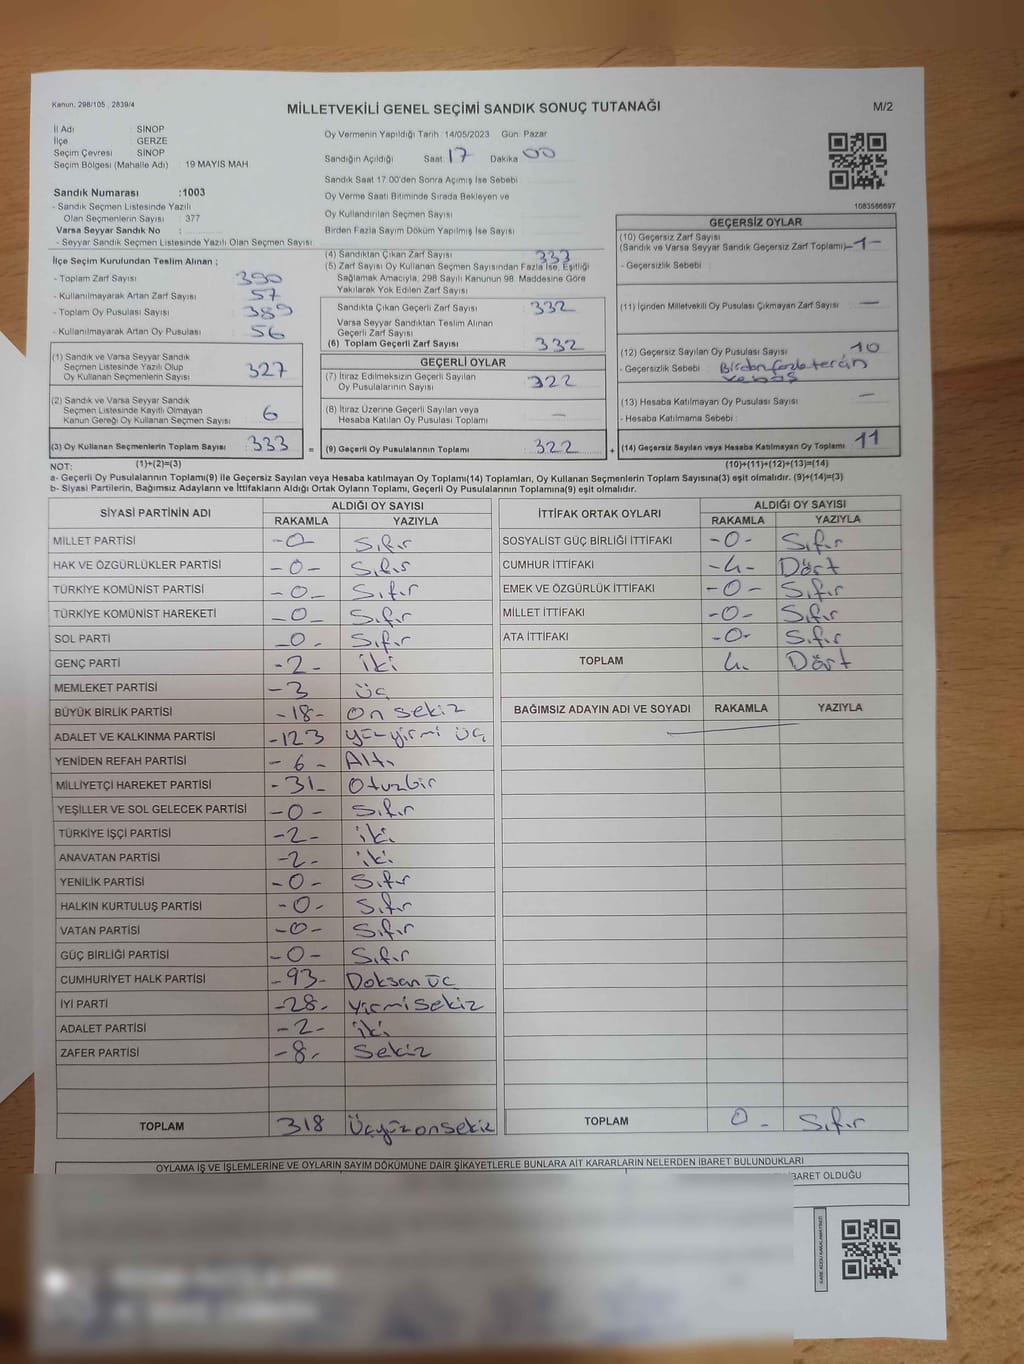 Kanun, 298/105 , 2839/4
MİLLETVEKİLİ GENEL SEÇİMİ SANDIK SONUÇ TUTANAĞI
M/2
İl Adı : SİNOP
İlçe : GERZE
Seçim Çevresi : SİNOP
Seçim Bölgesi (Mahalle Adı) : 19 MAYIS MAH
Sandık Numarası :1003
- Sandık Seçmen Listesinde Yazılı
Olan Seçmenlerin Sayısı : 377
Varsa Seyyar Sandık No :
- Seyyar Sandık Seçmen Listesinde Yazılı Olan Seçmen Sayısı :
Oy Vermenin Yapıldığı Tarih :14/05/2023 Gün: Pazar
Sandığın Açıldığı Saat 17 Dakika 00
Sandık Saat 17:00'den Sonra Açımış İse Sebebi
Oy Verme Saati Bitiminde Sırada Bekleyen ve
Oy Kullandırılan Seçmen Sayısı
Birden Fazla Sayım Döküm Yapılmış İse Sayısı
1083566697
İlçe Seçim Kurulundan Teslim Alınan ;
- Toplam Zarf Sayısı 390
- Kullanılmayarak Artan Zarf Sayısı 57
- Toplam Oy Pusulası Sayısı 389
- Kullanılmayarak Artan Oy Pusulası 56
(1) Sandık ve Varsa Seyyar Sandık
Seçmen Listesinde Yazılı Olup
Oy Kullanan Seçmenlerin Sayısı 327
(2) Sandık ve Varsa Seyyar Sandık
Seçmen Listesinde Kayıtlı Olmayan
Kanun Gereği Oy Kullanan Seçmen Sayısı 6
(3) Oy Kullanan Seçmenlerin Toplam Sayısı 333 =
(4) Sandıktan Çıkan Zarf Sayısı 333
(5) Zarf Sayısı Oy Kullanan Seçmen Sayısından Fazla İse, Eşitliği
Sağlamak Amacıyla, 298 Sayılı Kanunun 98. Maddesine Göre
Yakılarak Yok Edilen Zarf Sayısı
Sandıkta Çıkan Geçerli Zarf Sayısı 332
Varsa Seyyar Sandıktan Teslim Alınan
Geçerli Zarf Sayısı
(6) Toplam Geçerli Zarf Sayısı 332
GEÇERLİ OYLAR
(7) İtiraz Edilmeksizin Geçerli Sayılan
Oy Pusulalarının Sayısı 322
(8) İtiraz Üzerine Geçerli Sayılan veya
Hesaba Katılan Oy Pusulası Toplamı —
(9) Geçerli Oy Pusulalarının Toplamı 322 +
GEÇERSİZ OYLAR
(10) Geçersiz Zarf Sayısı
(Sandık ve Varsa Seyyar Sandık Geçersiz Zarf Toplamı) -1-
- Geçersizlik Sebebi :
(11) İçinden Milletvekili Oy Pusulası Çıkmayan Zarf Sayısı —
(12) Geçersiz Sayılan Oy Pusulası Sayısı 10
- Geçersizlik Sebebi : Birden fazla
ve boş
(13) Hesaba Katılmayan Oy Pusulası Sayısı —
- Hesaba Katılmama Sebebi :
(14) Geçersiz Sayılan veya Hesaba Katılmayan Oy Toplamı 11
NOT: (1)+(2)=(3) (10)+(11)+(12)+(13)=(14)
a- Geçerli Oy Pusulalarının Toplamı(9) ile Geçersiz Sayılan veya Hesaba katılmayan Oy Toplamı(14) Toplamları, Oy Kullanan Seçmenlerin Toplam Sayısına(3) eşit olmalıdır. (9)+(14)=(3)
b- Siyasi Partilerin, Bağımsız Adayların ve İttifakların Aldığı Ortak Oyların Toplamı, Geçerli Oy Pusulalarının Toplamına(9) eşit olmalıdır.
SİYASİ PARTİNİN ADI ALDIĞI OY SAYISI
RAKAMLA YAZIYLA
MİLLET PARTİSİ -0- Sıfır
HAK VE ÖZGÜRLÜKLER PARTİSİ -0- Sıfır
TÜRKİYE KOMÜNİST PARTİSİ -0- Sıfır
TÜRKİYE KOMÜNİST HAREKETİ -0- Sıfır
SOL PARTİ -0- Sıfır
GENÇ PARTİ -2- iki
MEMLEKET PARTİSİ -3 üç
BÜYÜK BİRLİK PARTİSİ -18- on sekiz
ADALET VE KALKINMA PARTİSİ -123 yüzyirmi üç
YENİDEN REFAH PARTİSİ -6- Altı
MİLLİYETÇİ HAREKET PARTİSİ -31- Otuzbir
YEŞİLLER VE SOL GELECEK PARTİSİ -0- Sıfır
TÜRKİYE İŞÇİ PARTİSİ -2- iki
ANAVATAN PARTİSİ -2- iki
YENİLİK PARTİSİ -0- Sıfır
HALKIN KURTULUŞ PARTİSİ -0- Sıfır
VATAN PARTİSİ -0- Sıfır
GÜÇ BİRLİĞİ PARTİSİ -0- Sıfır
CUMHURİYET HALK PARTİSİ -93- Doksan üç
İYİ PARTİ -28- Yirmisekiz
ADALET PARTİSİ -2- iki
ZAFER PARTİSİ -8- Sekiz
TOPLAM 318 Üçyüzonsekiz
İTTİFAK ORTAK OYLARI ALDIĞI OY SAYISI
RAKAMLA YAZIYLA
SOSYALİST GÜÇ BİRLİĞİ İTTİFAKI -0- Sıfır
CUMHUR İTTİFAKI -4- Dört
EMEK VE ÖZGÜRLÜK İTTİFAKI -0- Sıfır
MİLLET İTTİFAKI -0- Sıfır
ATA İTTİFAKI -0- Sıfır
TOPLAM 4. Dört
BAĞIMSIZ ADAYIN ADI VE SOYADI RAKAMLA YAZIYLA
TOPLAM 0- Sıfır
OYLAMA İŞ VE İŞLEMLERİNE VE OYLARIN SAYIM DÖKÜMÜNE DAİR ŞİKAYETLERLE BUNLARA AİT KARARLARIN NELERDEN İBARET BULUNDUKLARI
İBARET OLDUĞU